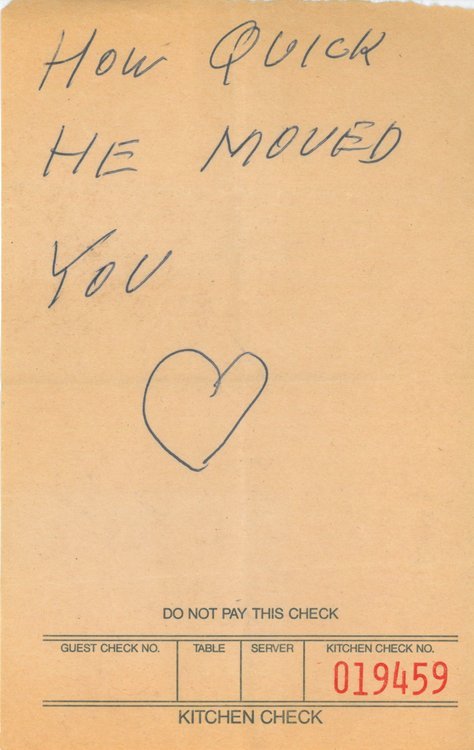 HOW QUICK
HE MOVED
YOU
DO NOT PAY THIS CHECK
GUEST CHECK NO. TABLE SERVER KITCHEN CHECK NO.
019459
KITCHEN CHECK